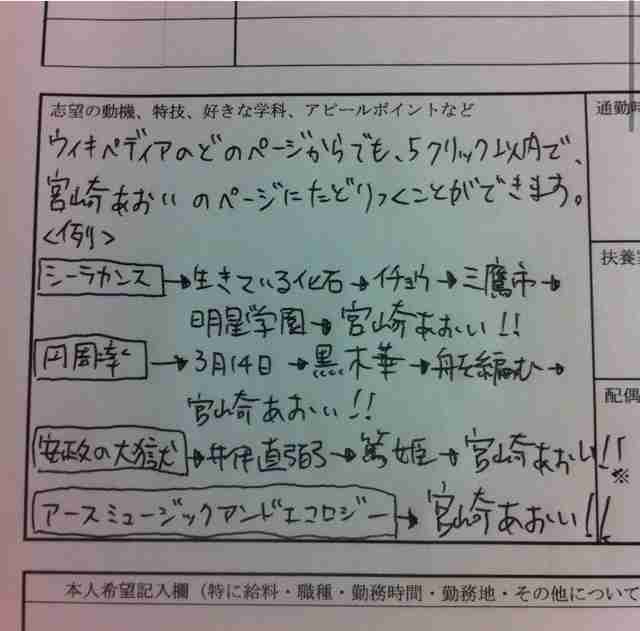 志望の動機、特技、好きな学科、アピールポイントなど
通勤時
ウィキペディアのどのページからでも、5クリック以内で、
宮崎あおいのページにたどりつくことができます。
<例>
シーラカンス→生きている化石→イチョウ→三鷹市→
明星学園→宮崎あおい!!
扶養家
円周率→3月14日→黒木華→舟を編む→
宮崎あおい!!
配偶
安政の大獄→井伊直弼→篤姫→宮崎あおい!!
※
アースミュージックアンドエコロジー→宮崎あおい!!
本人希望記入欄(特に給料・職種・勤務時間・勤務地・その他について